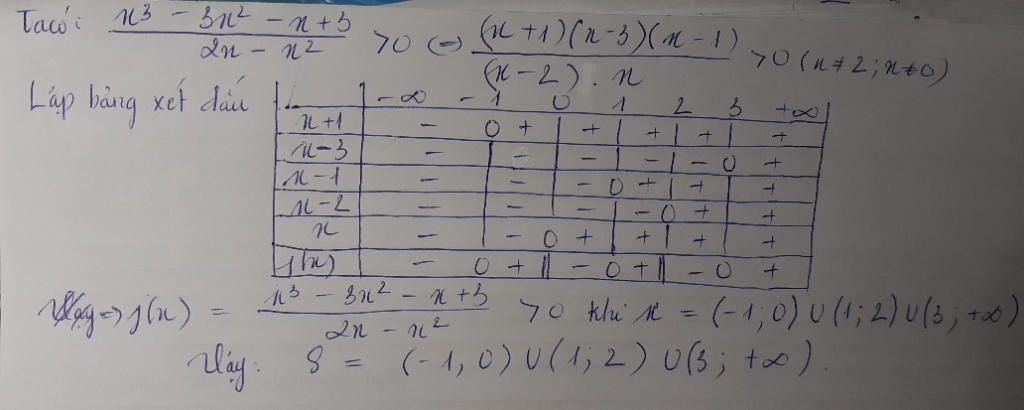 Ta có: (x³ - 3x² - x + 3)/(2x - x²) > 0 (=) ((x+1)(x-3)(x-1))/((x-2).x) > 0 (x≠2; x≠0)
Lập bảng xét dấu
-∞ -1 0 1 2 3 +∞
x+1 - 0 + | + | + | + | +
x-3 - | - | - | - | - 0 +
x-1 - | - | - 0 + | + | +
x-2 - | - | - | - 0 + | +
x - | - 0 + | + | + | +
f(x) - 0 + || - 0 + || - 0 +
=> f(x) = (x³ - 3x² - x + 3)/(2x - x²) > 0 khi x = (-1; 0) ∪ (1; 2) ∪ (3; +∞)
Vậy: S = (-1; 0) ∪ (1; 2) ∪ (3; +∞).